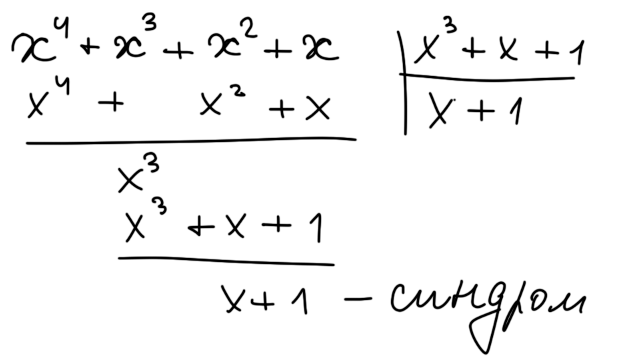 x⁴ + x³ + x² + x | x³ + x + 1
x⁴ + x² + x | x + 1
x³
x³ + x + 1
x + 1 – синдром